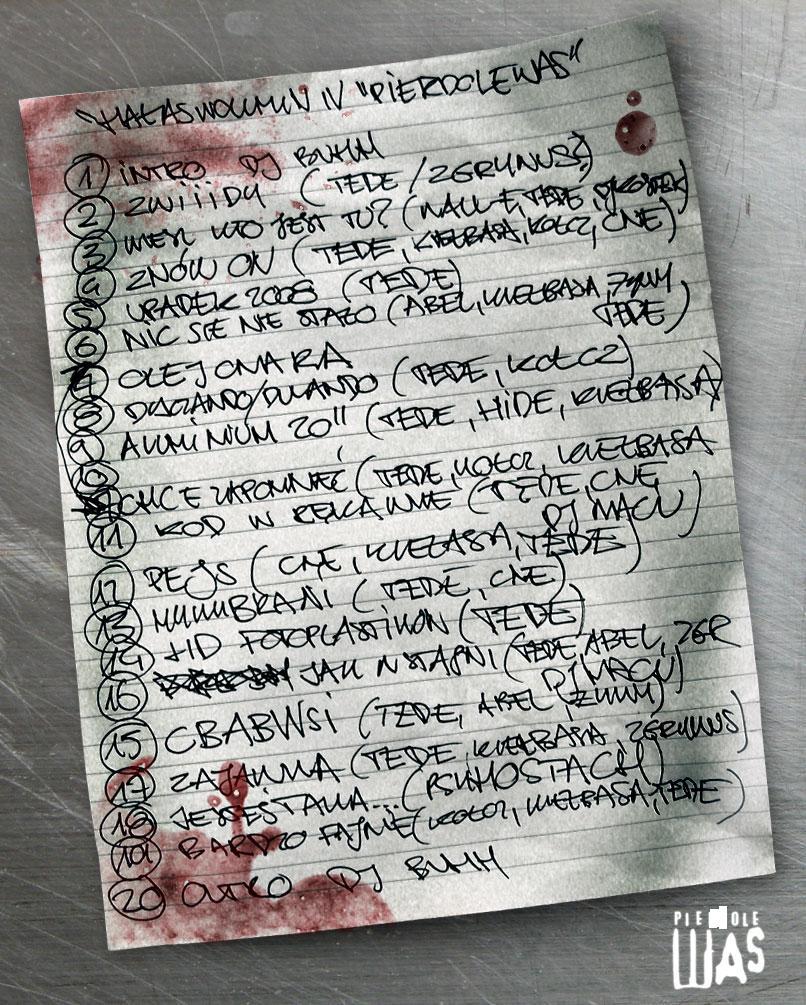 "HAŁAS WOLUMIN IV "PIERDOLE WAS"
1 INTRO DJ BUHH
2 ZWIIIDY (TEDE / ZGRYWUS)
3 WIESZ KTO JEST TU? (WALL-E, TEDE, DJ KOSTEK)
4 ZNÓW ON (TEDE, KIEŁBASA, KOŁCZ, CNE)
5 UPADEK 2008 (TEDE)
6 NIC SIE NIE STAŁO (ABEL, KIEŁBASA,
TEDE)
7 OLEJ ONARA
8 (TEDE, KOŁCZ)
9 ALUMINIUM 20" (TEDE, HIDE, KIEŁBASA)
10 CHCE ZAPOMNIEĆ (TEDE, KOŁCZ, KIEŁBASA
11 KOD W REKLAMIE (TEDE, CNE,
DJ MACU)
12 PEJS (CNE, KIEŁBASA, TEDE)
13 (TEDE, CNE)
14 HD FOTOPLASTIKON (TEDE)
16 JAK W STAJNI (TEDE, ABEL, ZGR
DJ MACU)
15 CBABWSI (TEDE, ABEL)
17 ZAJAWKA (TEDE, KIEŁBASA, ZGRYWUS)
18 (PSIHOSTACH)
19 BARDZO FAJNIE (KOŁCZ, KIEŁBASA, TEDE)
20 OUTRO DJ BUHH
PIE OLE
WAS